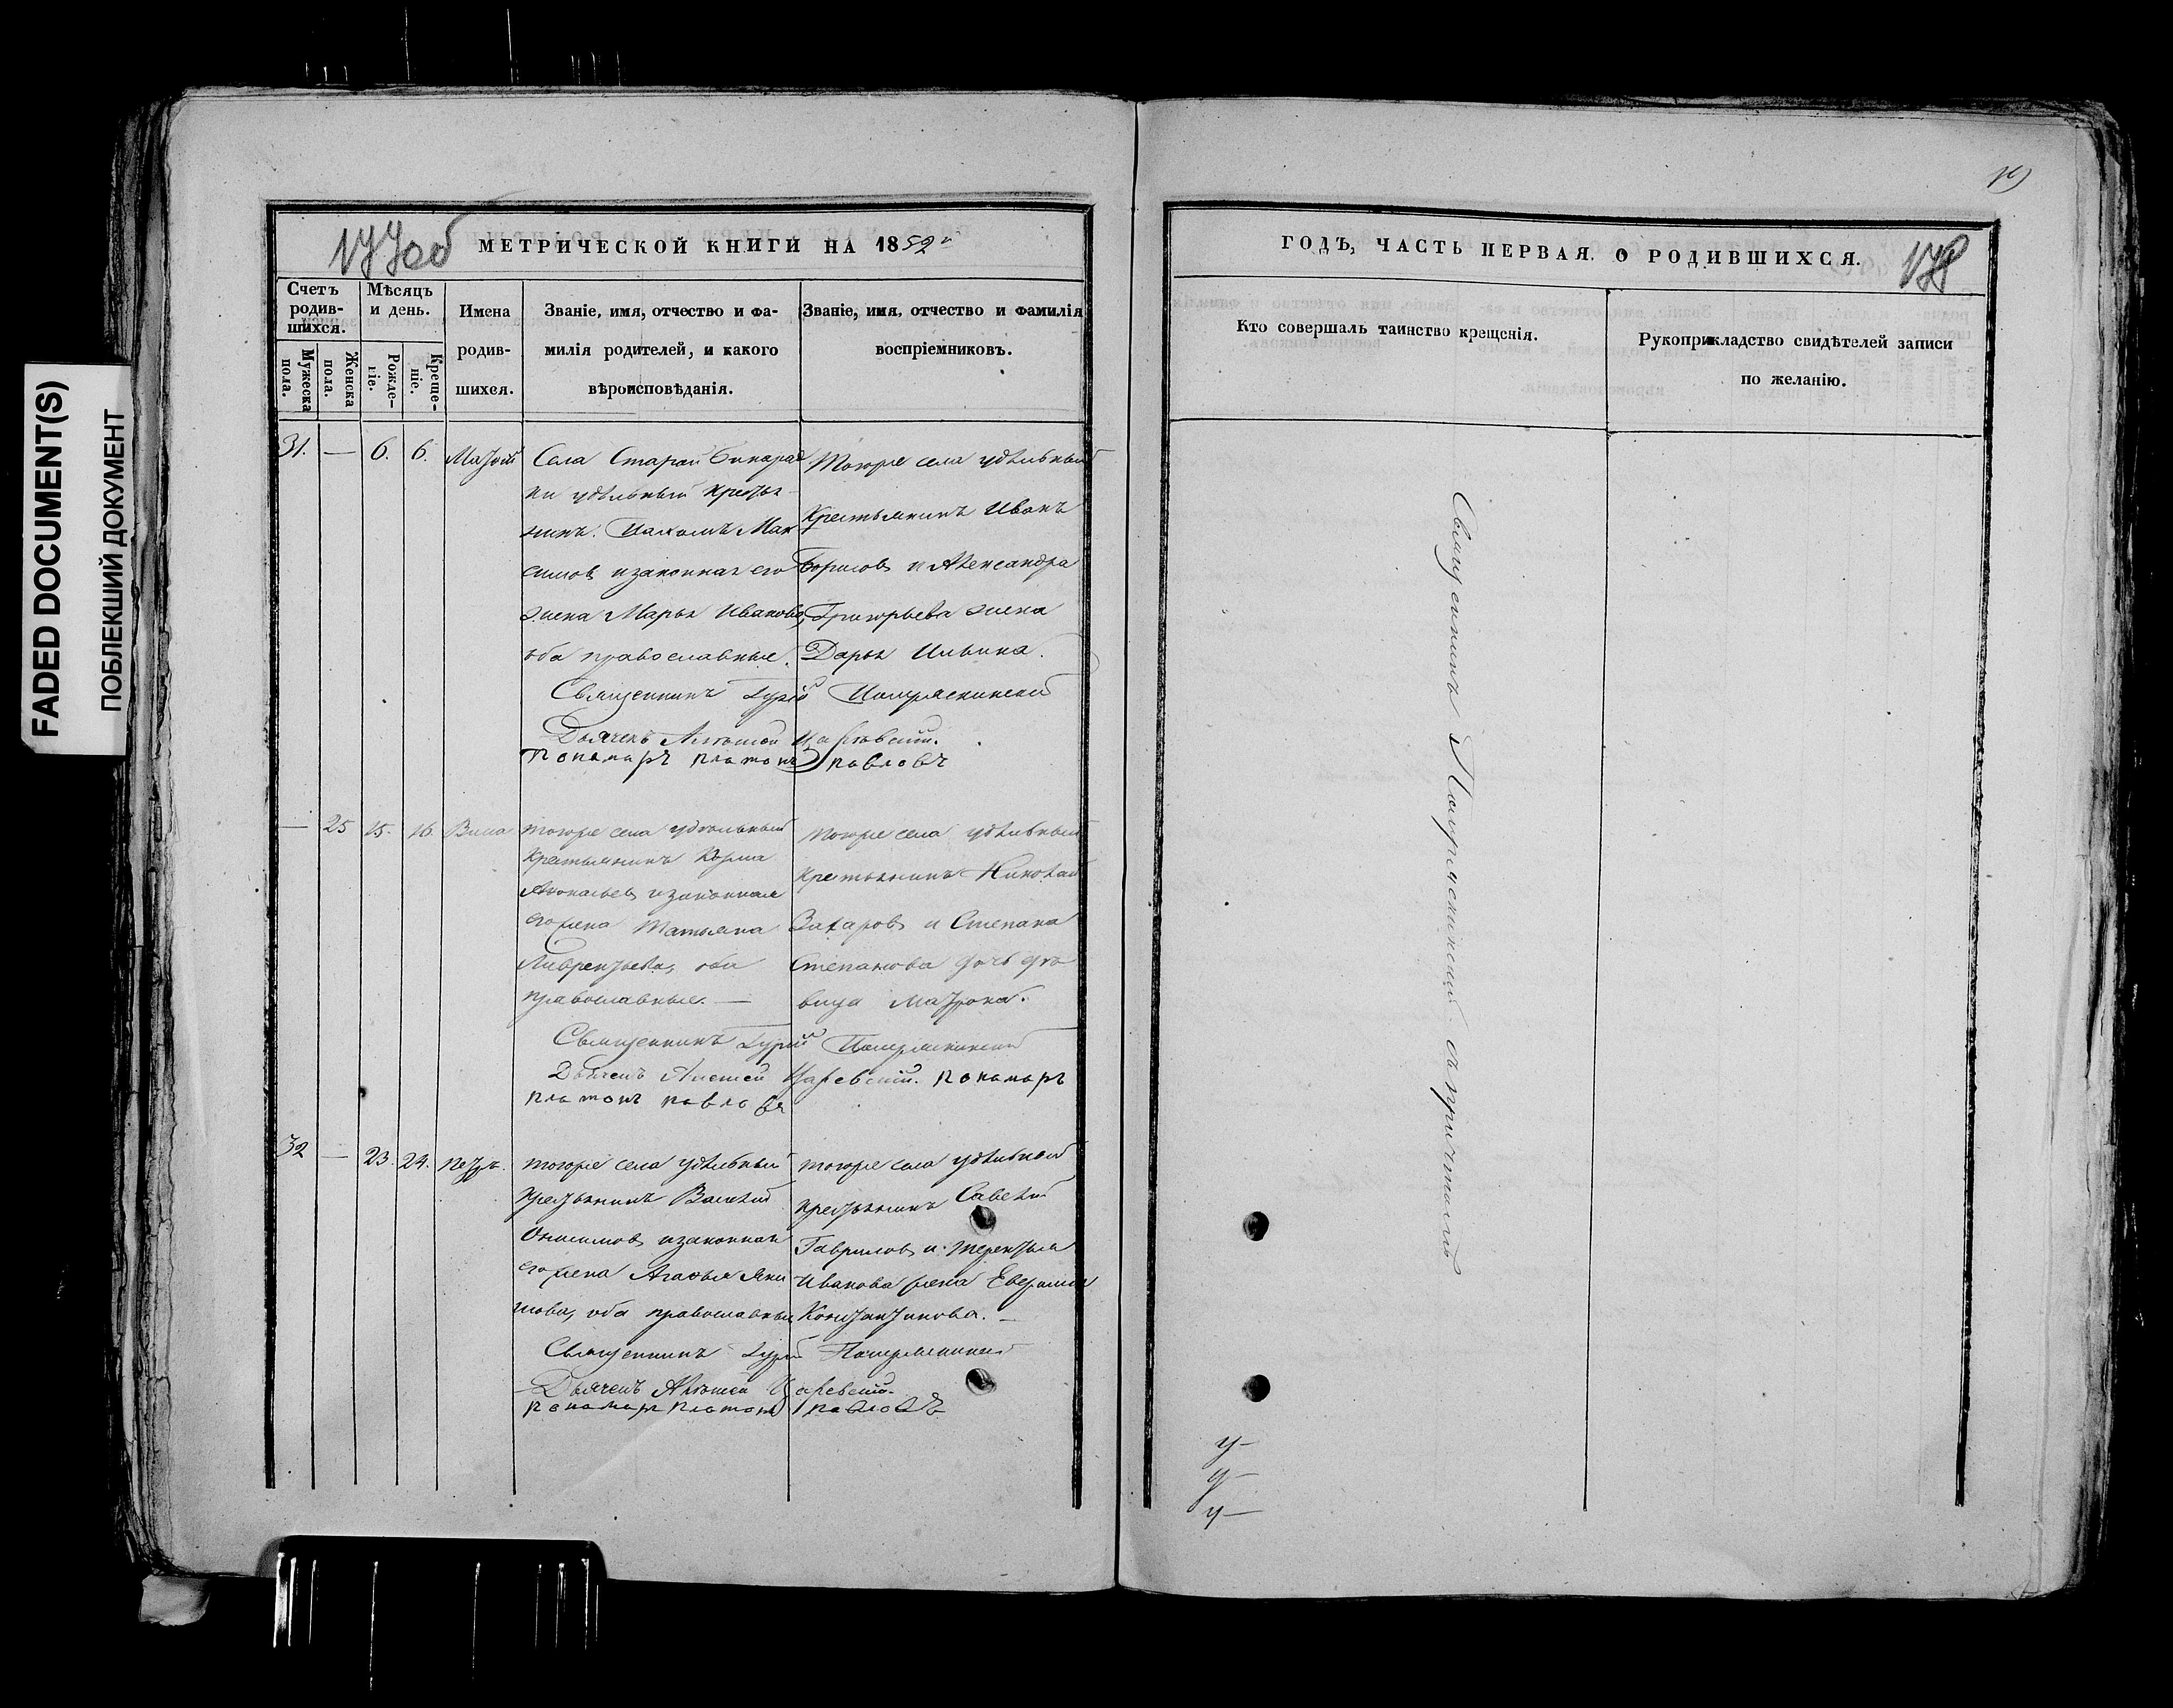 FADED DOCUMENT(S)
ПОБЛЕКШИЙ ДОКУМЕНТ
177об
МЕТРИЧЕСКОЙ КНИГИ НА 1852й
Счетъ родив-шихся.
Мужеска пола.
Женска пола.
Мѣсяцъ и день.
Рожде-ніе.
Креще-ніе.
Имена
родив-
шихся.
Званіе, имя, отчество и фа-
милія родителей, и какого
вѣроисповѣданія.
Званіе, имя, отчество и фамилія
воспріемниковъ.
31. — 6. 6.
Села Старой Бинарад
ки удѣльный кресть
нинъ. Пахомъ Мак
симовъ и законная его
жена Марья Иванова,
оба православные.
Тогоже села удѣльный
Крестьянинъ Иванъ
Борисовъ и Александра
Григорьева жена
Дарья Ильина.
Священникъ Гурій
Дьячекъ Алексей Царевский.
Пономарь платонъ павловъ
— 25 15. 16.
тогоже села удѣльный
Крестьянинъ Козма
и законная
его жена Татьяна
Лаврентьева, оба
православные. —
тогоже села удѣльный
крестьянинъ Николай
Захаровъ и Степана
Степанова дочь дѣ
вица Матрона.
Священникъ Гурій
Дьячекъ Алексей Царевский. пономарь
платонъ павловъ
32 — 23. 24. Петръ.
тогоже села удѣльный
крестьянинъ Василий
Онисимовъ и законная
его жена Агафья Яки
мова, оба православные
тогоже села удѣльной
крестьянинъ Савелий
Гавриловъ и терентья
Иванова жена
Константинова. —
Священникъ Гурій
Дьячекъ Алексей Царевский.
пономарь платонъ павловъ
ГОДЪ, ЧАСТЬ ПЕРВАЯ. О РОДИВШИХСЯ.
178
Кто совершалъ таинство крещенія.
Рукоприкладство свидѣтелей записи
по желанію.
Священникъ
съ причтомъ
у—
у—
у—